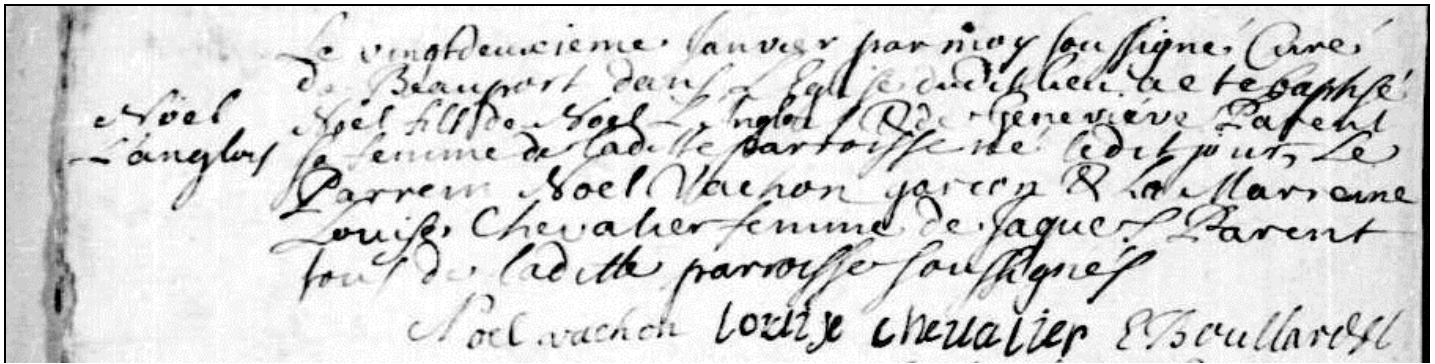 Le vingtdeuxieme Janvier par moy soussigné Curé
de Beauport dans l'Eglise dudit lieu a eté baptisé
Noël
Noel fils de Noel L'anglois & de Geneviéve Parent
L'anglois
sa femme de laditte parroisse né ledit jour, Le
Parrein Noel Vachon garçon & La Marreine
Louise Chevalier femme de Jaques Parent
tous de laditte parroisse soussignés
Noel vachon Louise chevalier E Boullard